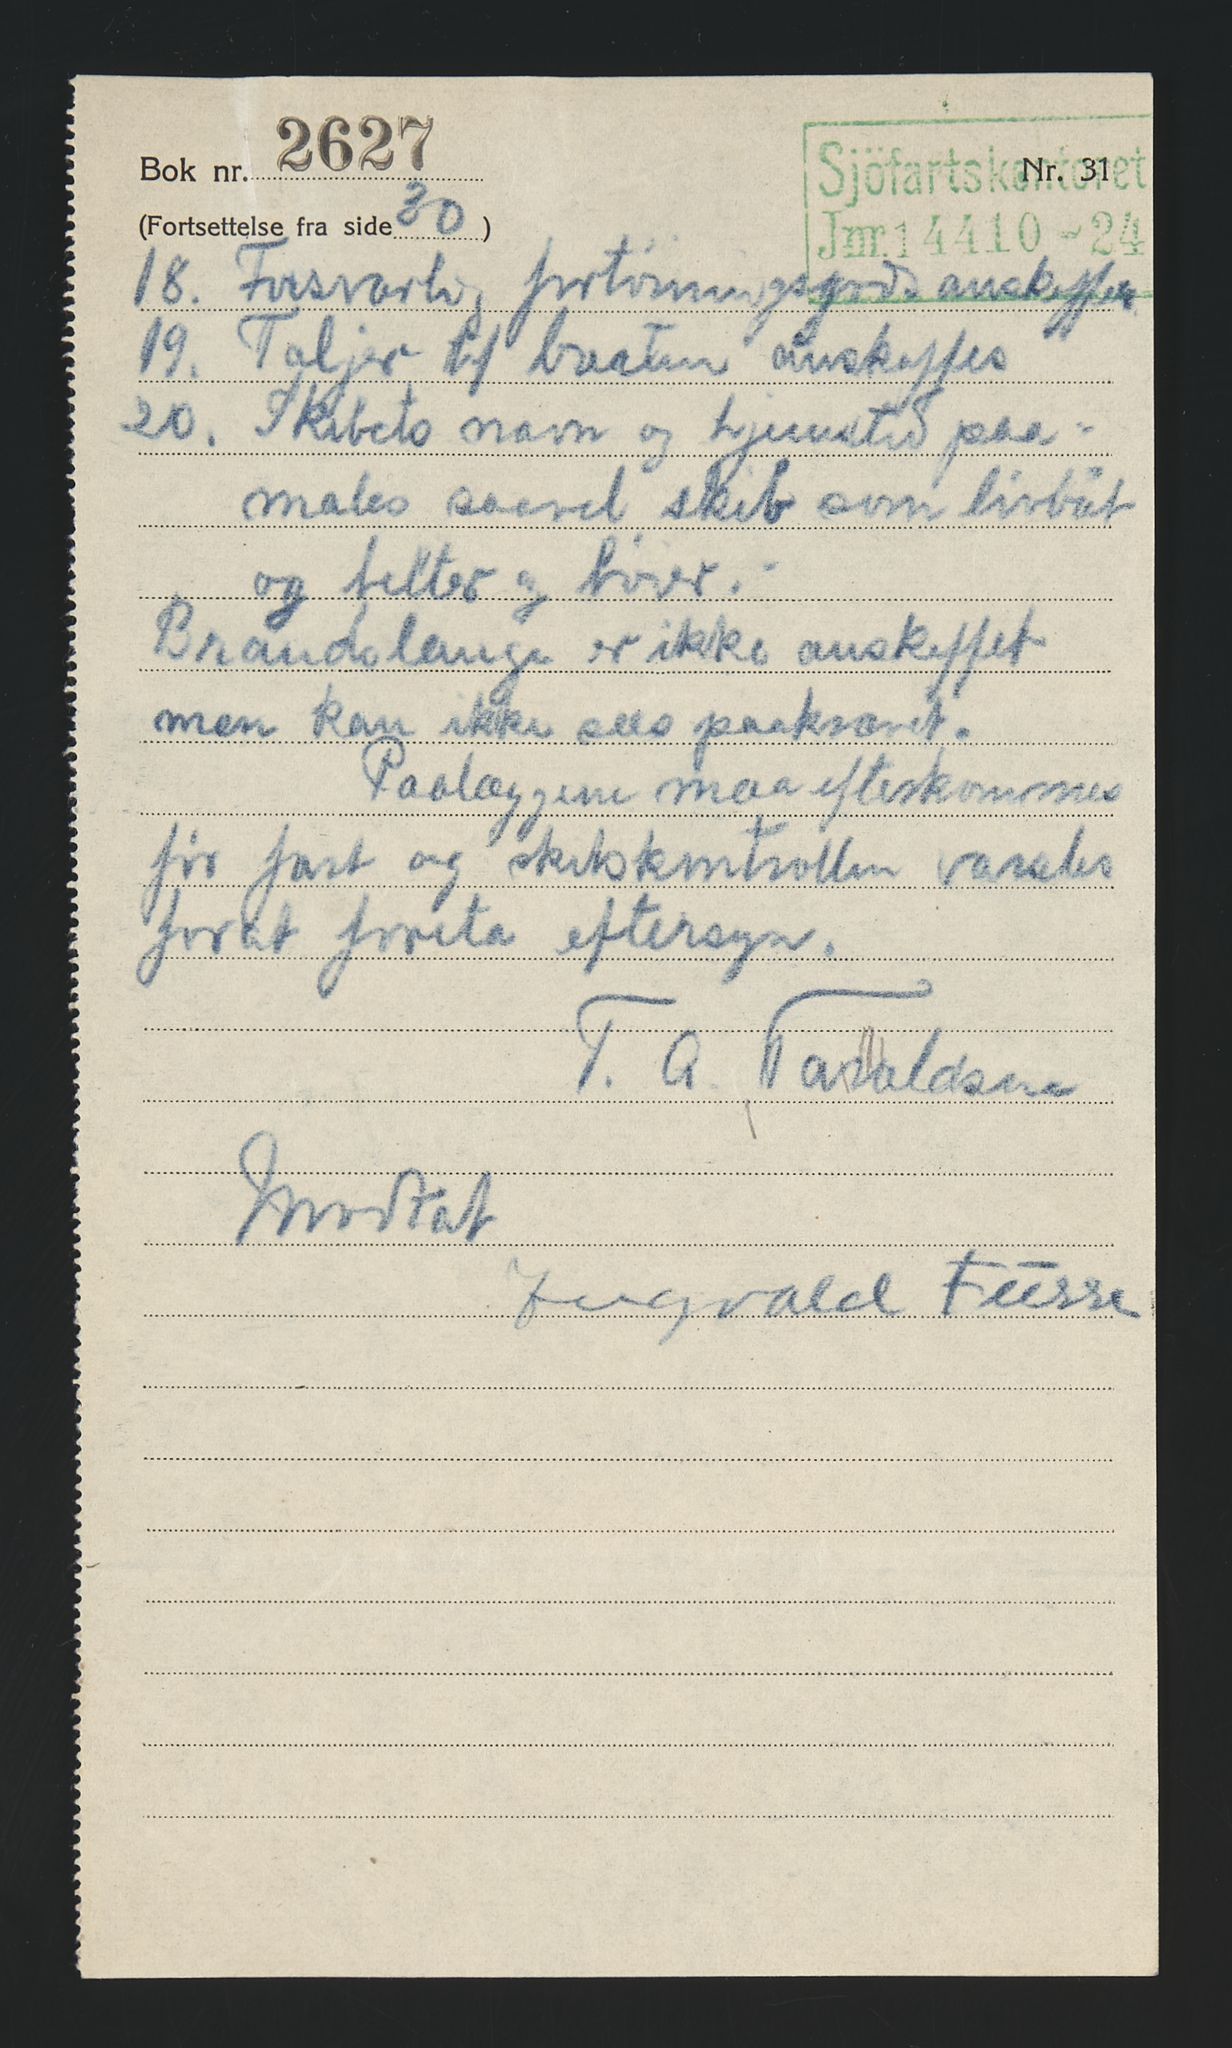 Bok nr. 2627
Nr. 31
Sjöfartskontoret
Jnr. 14410 - 24
(Fortsettelse fra side 30)
18. Forsvarlig fortöiningsgods anskaffes
19. Taljer til baaten anskaffes
20. Skibets navn og hjemsted paa-
males saavel skib som livbåt
og belter og bøier.-
Brandslange er ikke anskaffet
men kan ikke sees paakrævet.
Paalæggene maa efterkommes
før fart og skibskontrollen varsles
forat foreta eftersyn.
T. A. Taraldsen
Mottat
Ingvald